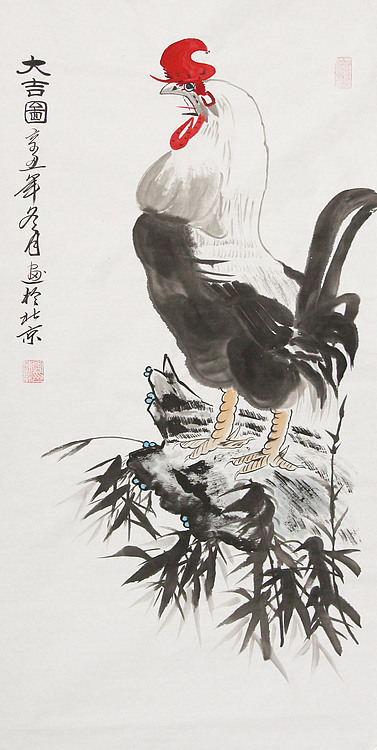 大吉圖
辛丑年冬月画於北京